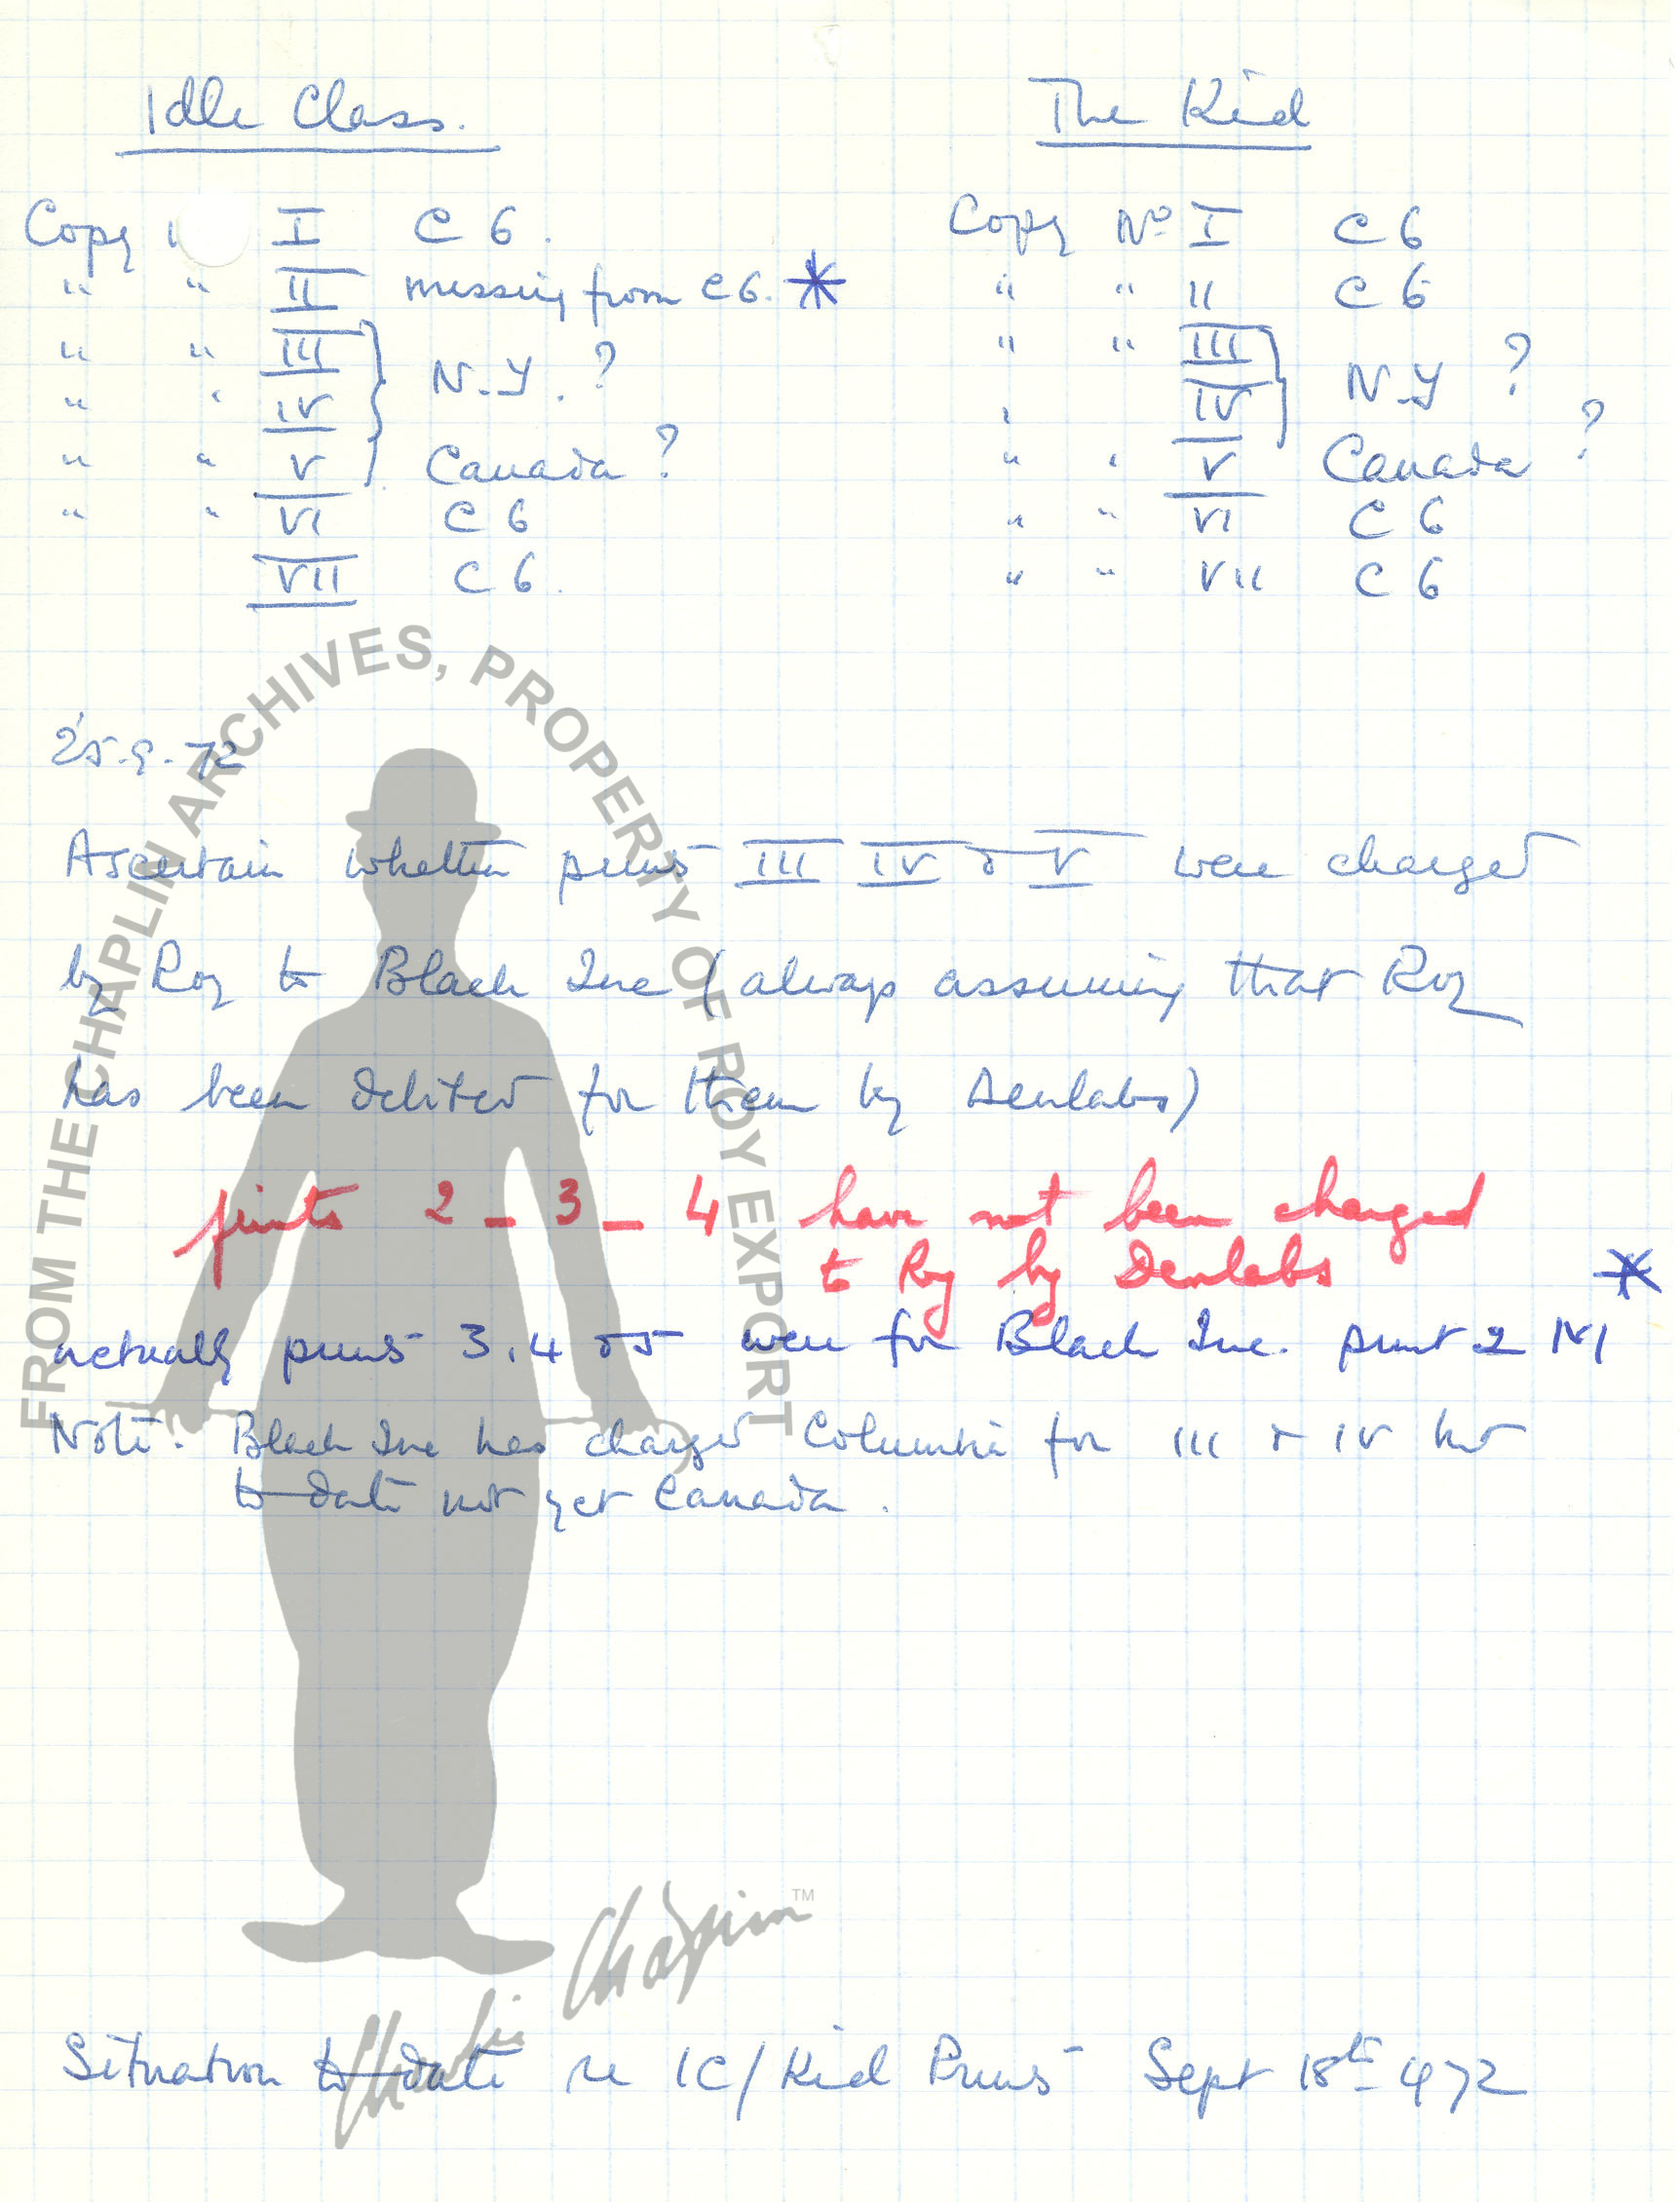 Idle Class.
Copy I C 6.
" " II missing from C 6. *
" " III } N.Y. ?
" " IV
" " V Canada ?
" " VI C 6
VII C 6.
The Kid
Copy Nº I C 6
" " II C 6
" " III } N.Y ?
" IV
" " V Canada ?
" " VI C 6
" " VII C 6
25.9.72
Ascertain whether prints III IV & V were charged
by Roy to Black Inc (always assuming that Roy
has been debited for them by Denlabs)
prints 2 - 3 - 4 have not been charged
to Roy by Denlabs *
actually prints 3, 4 & 5 were for Black Inc. print 2
Note. Black Inc has charged Columbia for III & IV but
to date not yet Canada.
Situation to date re IC/Kid Prints Sept 18th 1972
FROM THE CHAPLIN ARCHIVES, PROPERTY OF ROY EXPORT
Charlie Chaplin ™